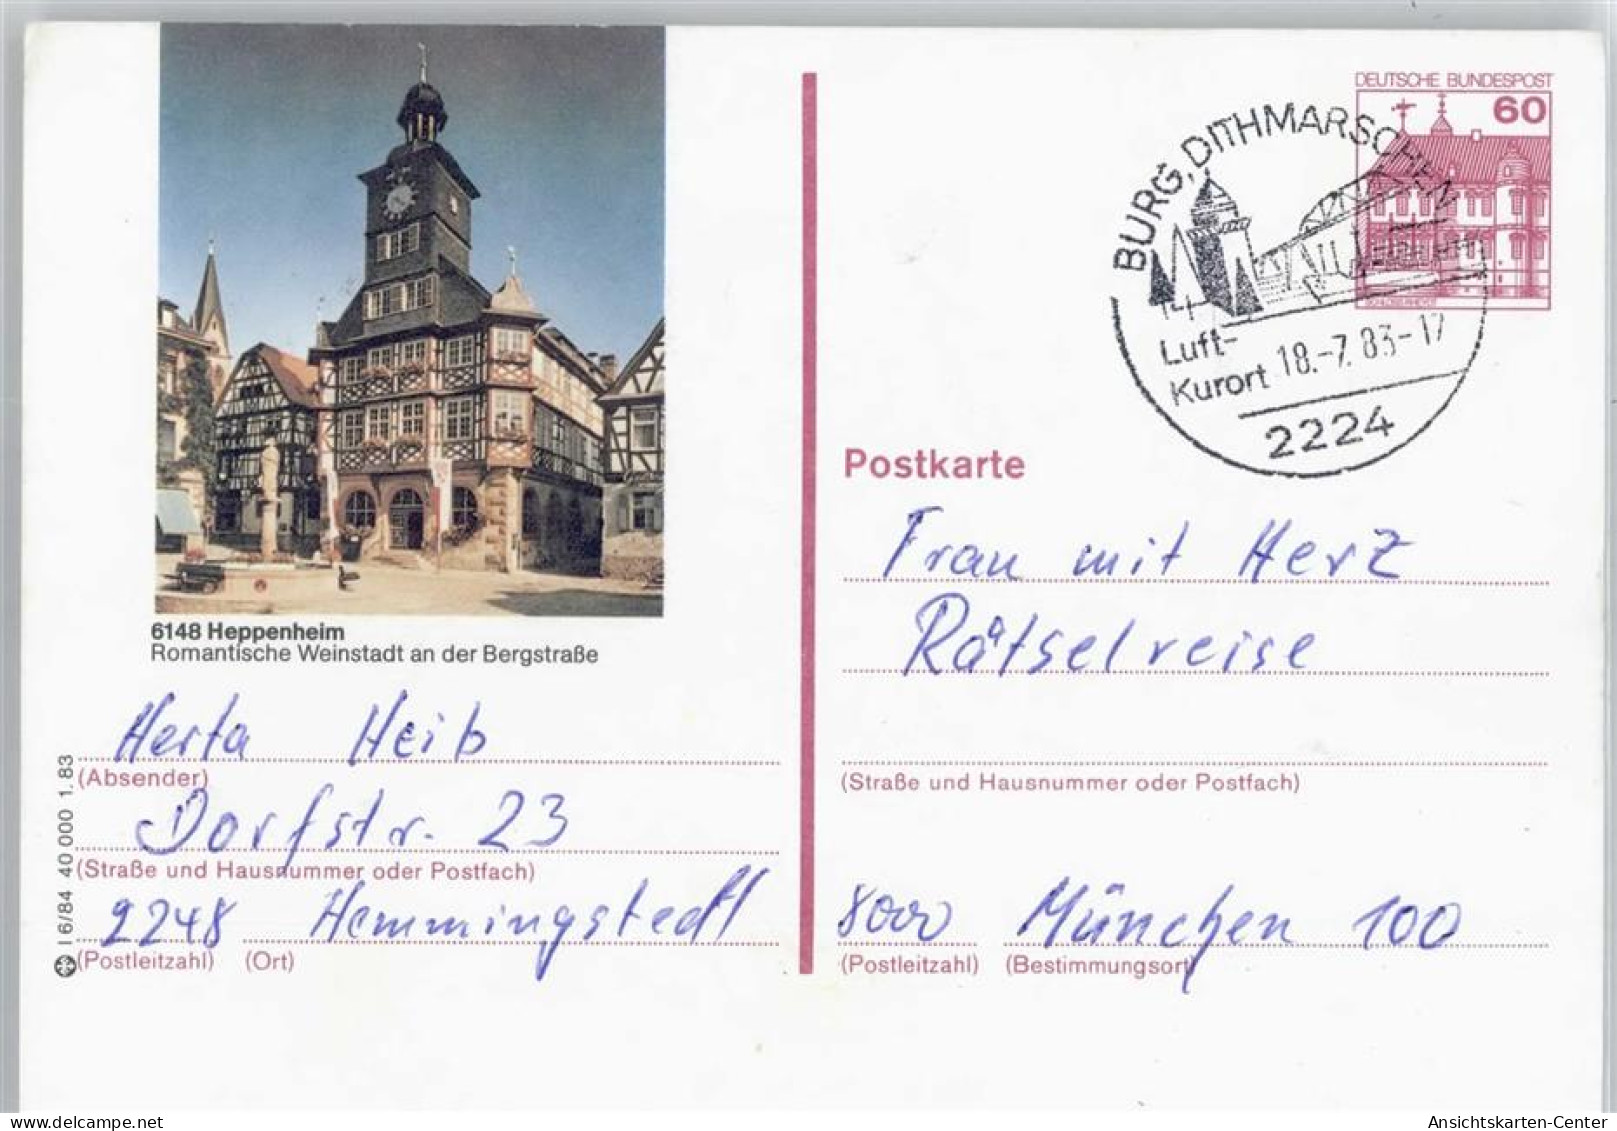 DEUTSCHE BUNDESPOST
60
BURG, DITHMARSCHEN
Luft-
Kurort 18.-7.83-17
2224
6148 Heppenheim
Romantische Weinstadt an der Bergstraße
Postkarte
Frau mit Herz
Rätselreise
(Straße und Hausnummer oder Postfach)
8000 München 100
(Postleitzahl) (Bestimmungsort)
Herta Heib
(Absender)
Dorfstr. 23
(Straße und Hausnummer oder Postfach)
2248 Hemmingstedt
(Postleitzahl) (Ort)
I 6/84 40 000 1.83
delcampe.net
Ansichtskarten-Center